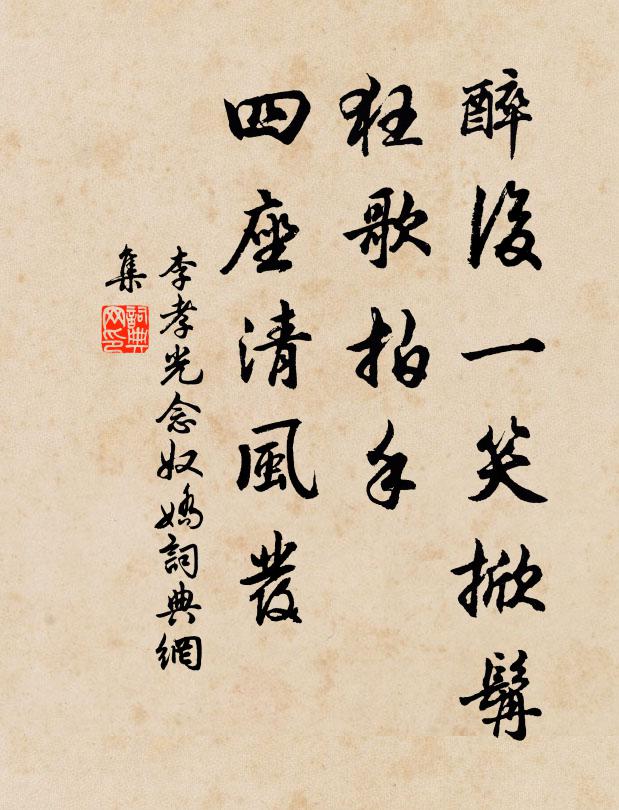 醉後一笑掀髯
狂歌拍手
四座清風發
李孝光念奴嬌詞典網
集
詞典网印